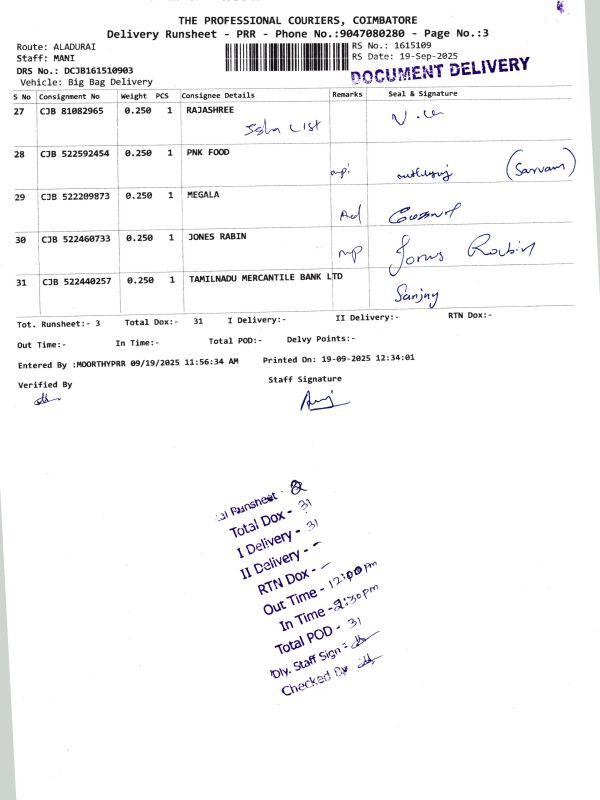 THE PROFESSIONAL COURIERS, COIMBATORE
Delivery Runsheet - PRR - Phone No.:9047080280 - Page No.:3
Route: ALADURAI
RS No.: 1615109
Staff: MANI
RS Date: 19-Sep-2025
DRS No.: DCJB161510903
DOCUMENT DELIVERY
Vehicle: Big Bag Delivery
S No Consignment No Weight PCS Consignee Details Remarks Seal & Signature
27 CJB 81082965 0.250 1 RAJASHREE
List
28 CJB 522592454 0.250 1 PNK FOOD
(Sarvam)
29 CJB 522209873 0.250 1 MEGALA
30 CJB 522460733 0.250 1 JONES RABIN
Jones Rabin
31 CJB 522440257 0.250 1 TAMILNADU MERCANTILE BANK LTD
Sanjay
Tot. Runsheet:- 3 Total Dox:- 31 I Delivery:- II Delivery:- RTN Dox:-
Out Time:- In Time:- Total POD:- Delvy Points:-
Entered By :MOORTHYPRR 09/19/2025 11:56:34 AM Printed On: 19-09-2025 12:34:01
Verified By Staff Signature
Runsheet -
Total Dox - 31
I Delivery - 31
II Delivery - -
RTN Dox - -
Out Time - 12:00 pm
In Time - 2:30 pm
Total POD - 31
Dly. Staff Sign :
Checked By